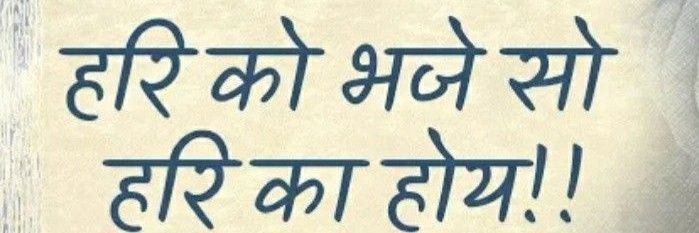 हरि को भजे सो
हरि का होय!!